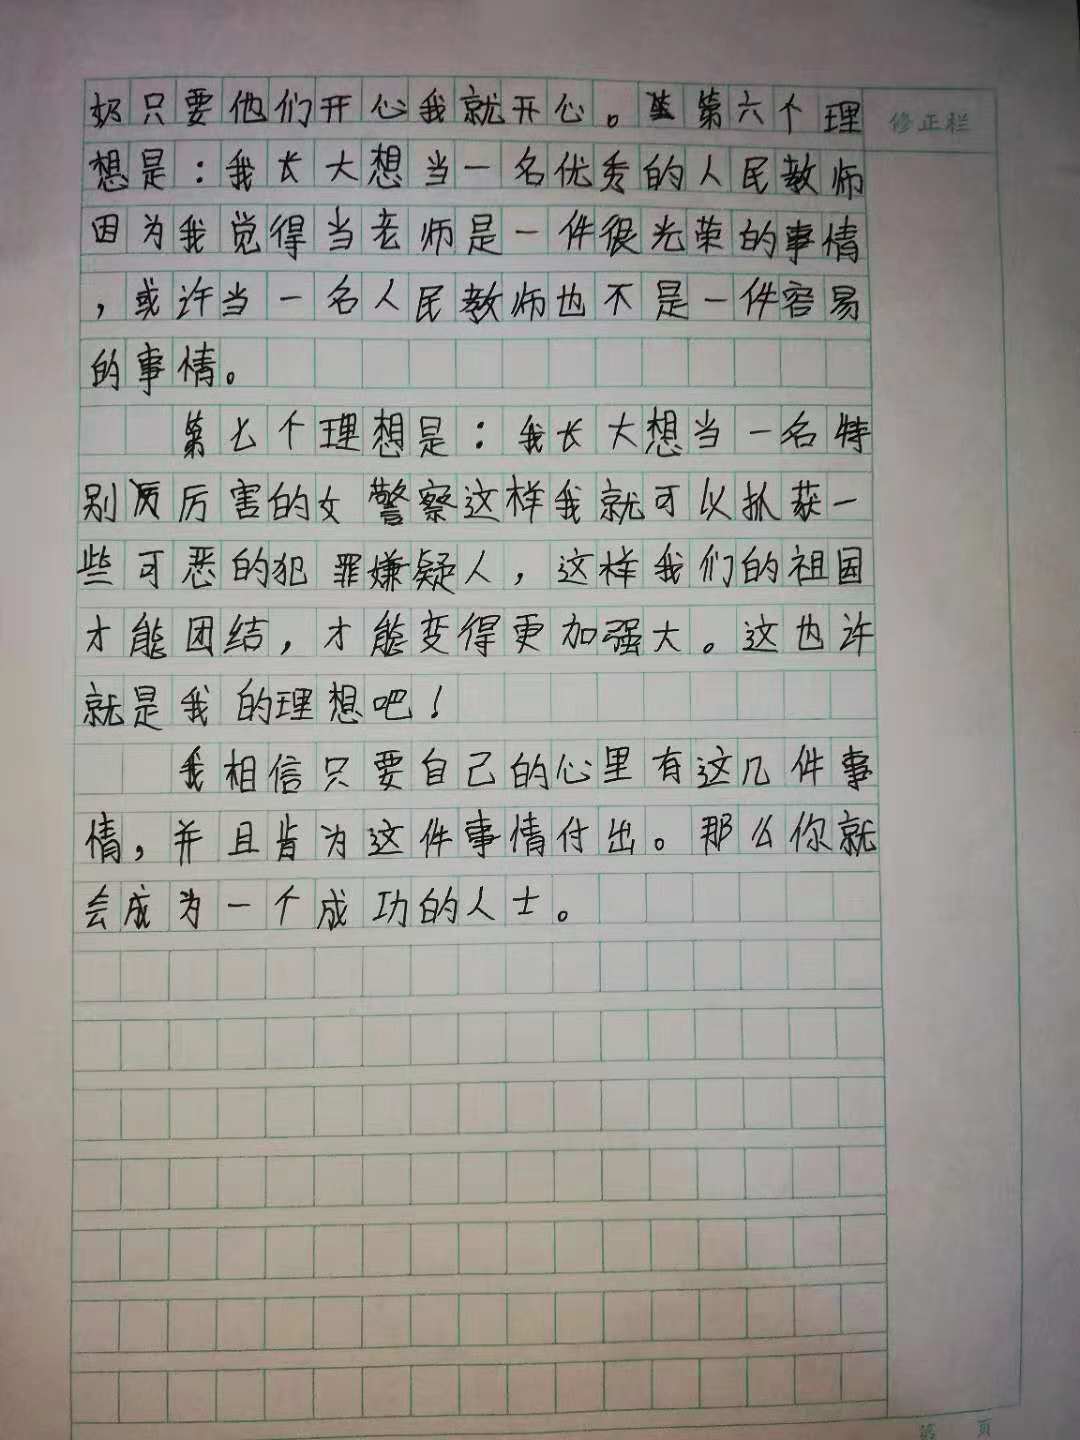 奶只要他们开心我就开心。第六个理
修正栏
想是：我长大想当一名优秀的人民教师
因为我觉得当老师是一件很光荣的事情
，或许当一名人民教师也不是一件容易
的事情。
第七个理想是：我长大想当一名特
别厉害的女警察这样我就可以抓获一
些可恶的犯罪嫌疑人，这样我们的祖国
才能团结，才能变得更加强大。这也许
就是我的理想吧！
我相信只要自己的心里有这几件事
情，并且肯为这件事情付出。那么你就
会成为一个成功的人士。
第 页